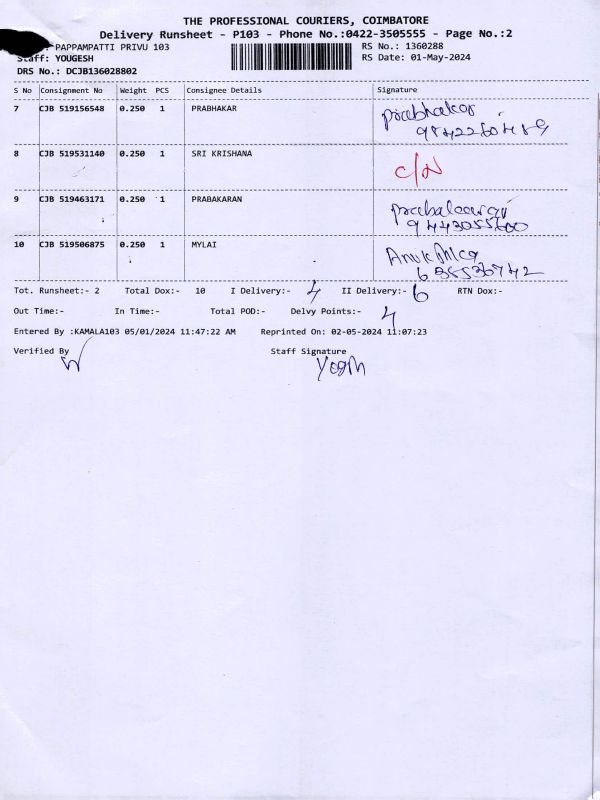 THE PROFESSIONAL COURIERS, COIMBATORE
Delivery Runsheet - P103 - Phone No.:0422-3505555 - Page No.:2
: PAPPAMPATTI PRIVU 103 RS No.: 1360288
Staff: YOUGESH RS Date: 01-May-2024
DRS No.: DCJB136028802
S No Consignment No Weight PCS Consignee Details Signature
7 CJB 519156548 0.250 1 PRABHAKAR prabhakar
8 CJB 519531140 0.250 1 SRI KRISHANA C/N
9 CJB 519463171 0.250 1 PRABAKARAN
9443055600
10 CJB 519506875 0.250 1 MYLAI
Tot. Runsheet:- 2 Total Dox:- 10 I Delivery:- 4 II Delivery:- 6 RTN Dox:-
Out Time:- In Time:- Total POD:- Delvy Points:- 4
Entered By :KAMALA103 05/01/2024 11:47:22 AM Reprinted On: 02-05-2024 11:07:23
Verified By Staff Signature